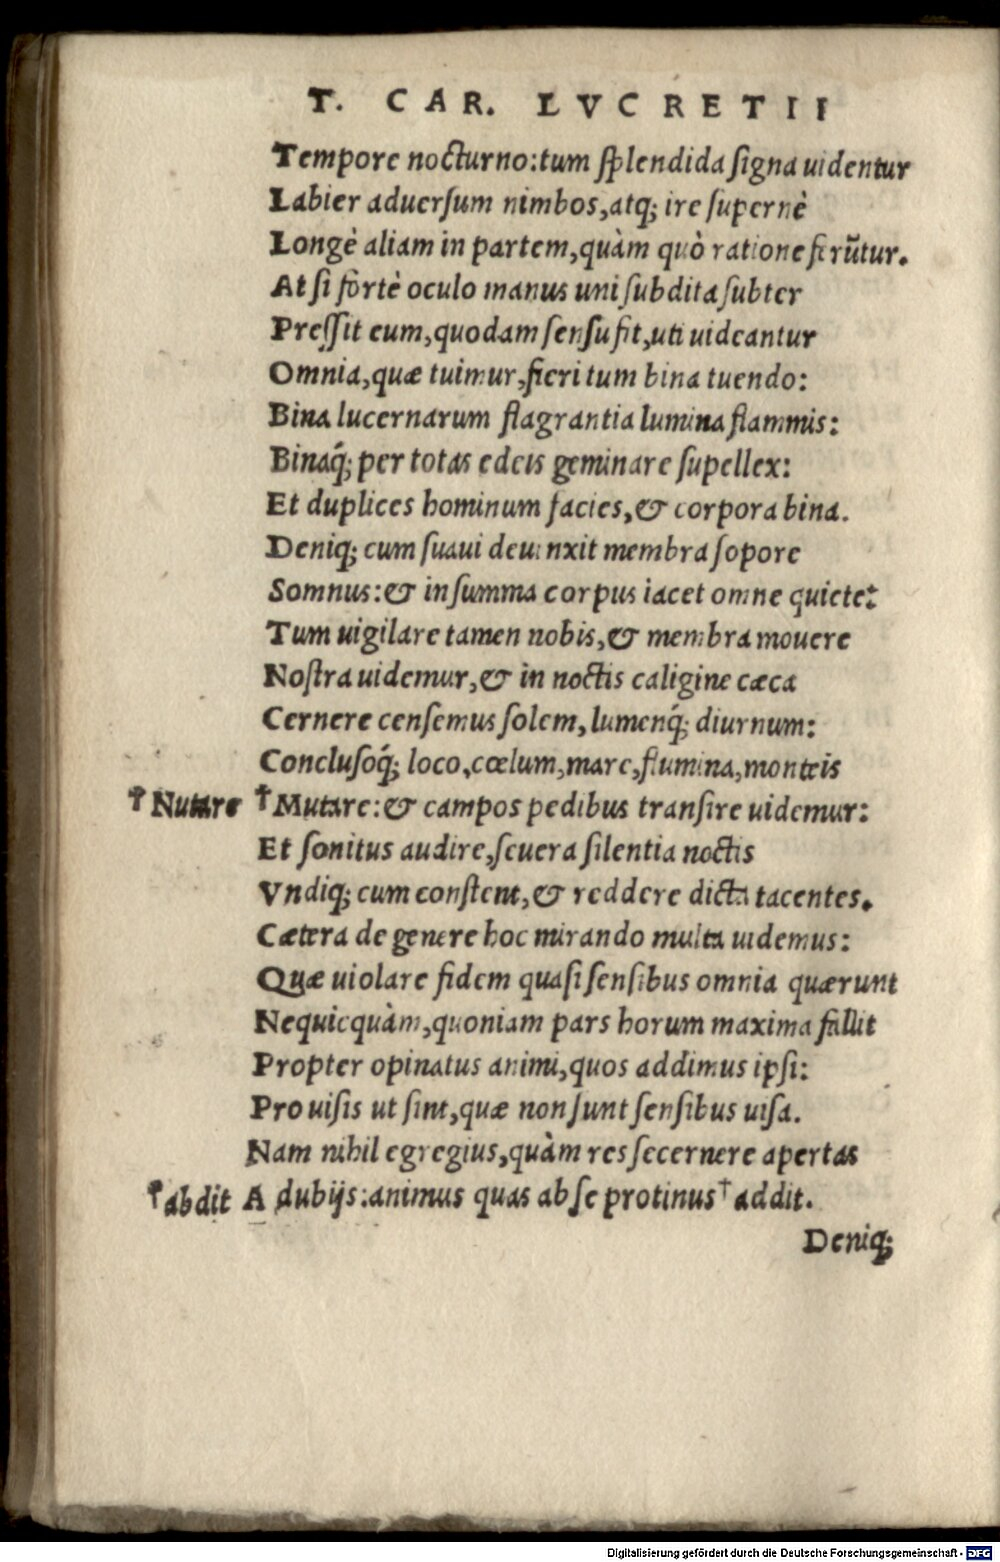 T. CAR. LVCRETII
Tempore nocturno:tum ſplendida ſigna uidentur
Labier aduerſum nimbos,atq; ire ſupernè
Longè aliam in partem,quàm quò ratione ferūtur.
At ſi fortè oculo manus uni ſubdita ſubter
Preſſit eum,quodam ſenſu fit,uti uideantur
Omnia,quæ tuimur,fieri tum bina tuendo:
Bina lucernarum flagrantia lumina flammis:
Binaq́; per totas edeis geminare ſupellex:
Et duplices hominum facies,& corpora bina.
Deniq; cum ſuaui deuinxit membra ſopore
Somnus:& in ſumma corpus iacet omne quiete:
Tum uigilare tamen nobis,& membra mouere
Noſtra uidemur,& in noctis caligine cæca
Cernere cenſemus ſolem,lumenq́; diurnum:
Concluſoq́; loco,cœlum,mare,flumina,monteis
†Nutare †Mutare:& campos pedibus tranſire uidemur:
Et ſonitus audire,ſeuera ſilentia noctis
Vndiq; cum conſtent,& reddere dicta tacentes.
Cætera de genere hoc mirando multa uidemus:
Quæ uiolare fidem quaſi ſenſibus omnia quærunt
Nequicquàm,quoniam pars horum maxima fallit
Propter opinatus animi,quos addimus ipſi:
Pro uiſis ut ſint,quæ non ſunt ſenſibus uiſa.
Nam nihil egregius,quàm res ſecernere apertas
†abdit A dubijs:animus quas ab ſe protinus †addit.
Deniq;
Digitalisierung gefördert durch die Deutsche Forschungsgemeinschaft - DFG